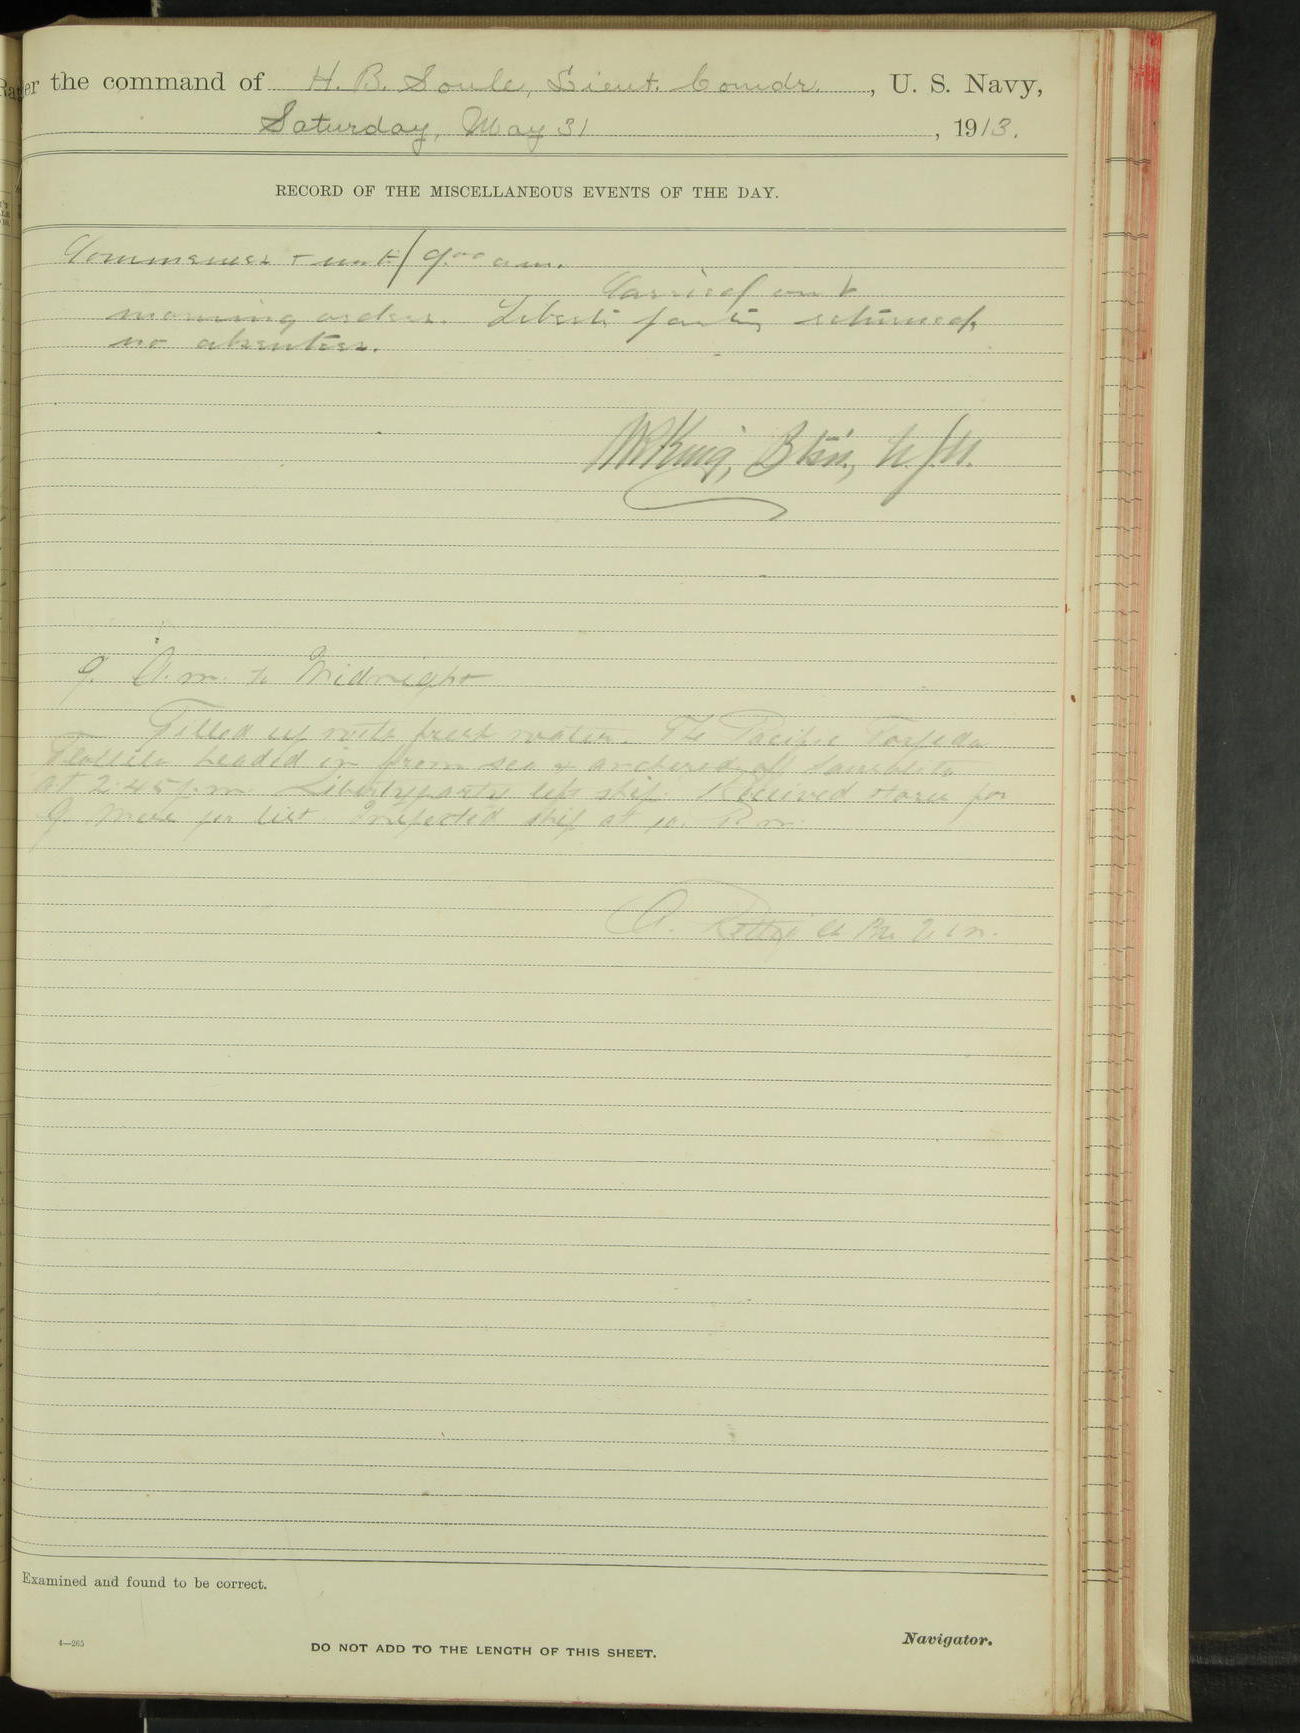 er the command of H. B. Soule, Lieut. Comdr., U. S. Navy,
Saturday, May 31, 1913.
RECORD OF THE MISCELLANEOUS EVENTS OF THE DAY.
Commences + until 9:00 am.
Carried out
morning orders. Liberty party returned,
no absentees.
W.R. King, Btsn., U.S.N.
9. A.m. to Midnight
Filled up with fresh water. The Pacific Torpedo
Flotilla headed in from sea & anchored off Sausalito
at 2:45 P.m. Liberty party left ship. Received stores for
G. Mess per list. Inspected ship at 10. P.m.
A.
Examined and found to be correct.
4—265
DO NOT ADD TO THE LENGTH OF THIS SHEET.
Navigator.